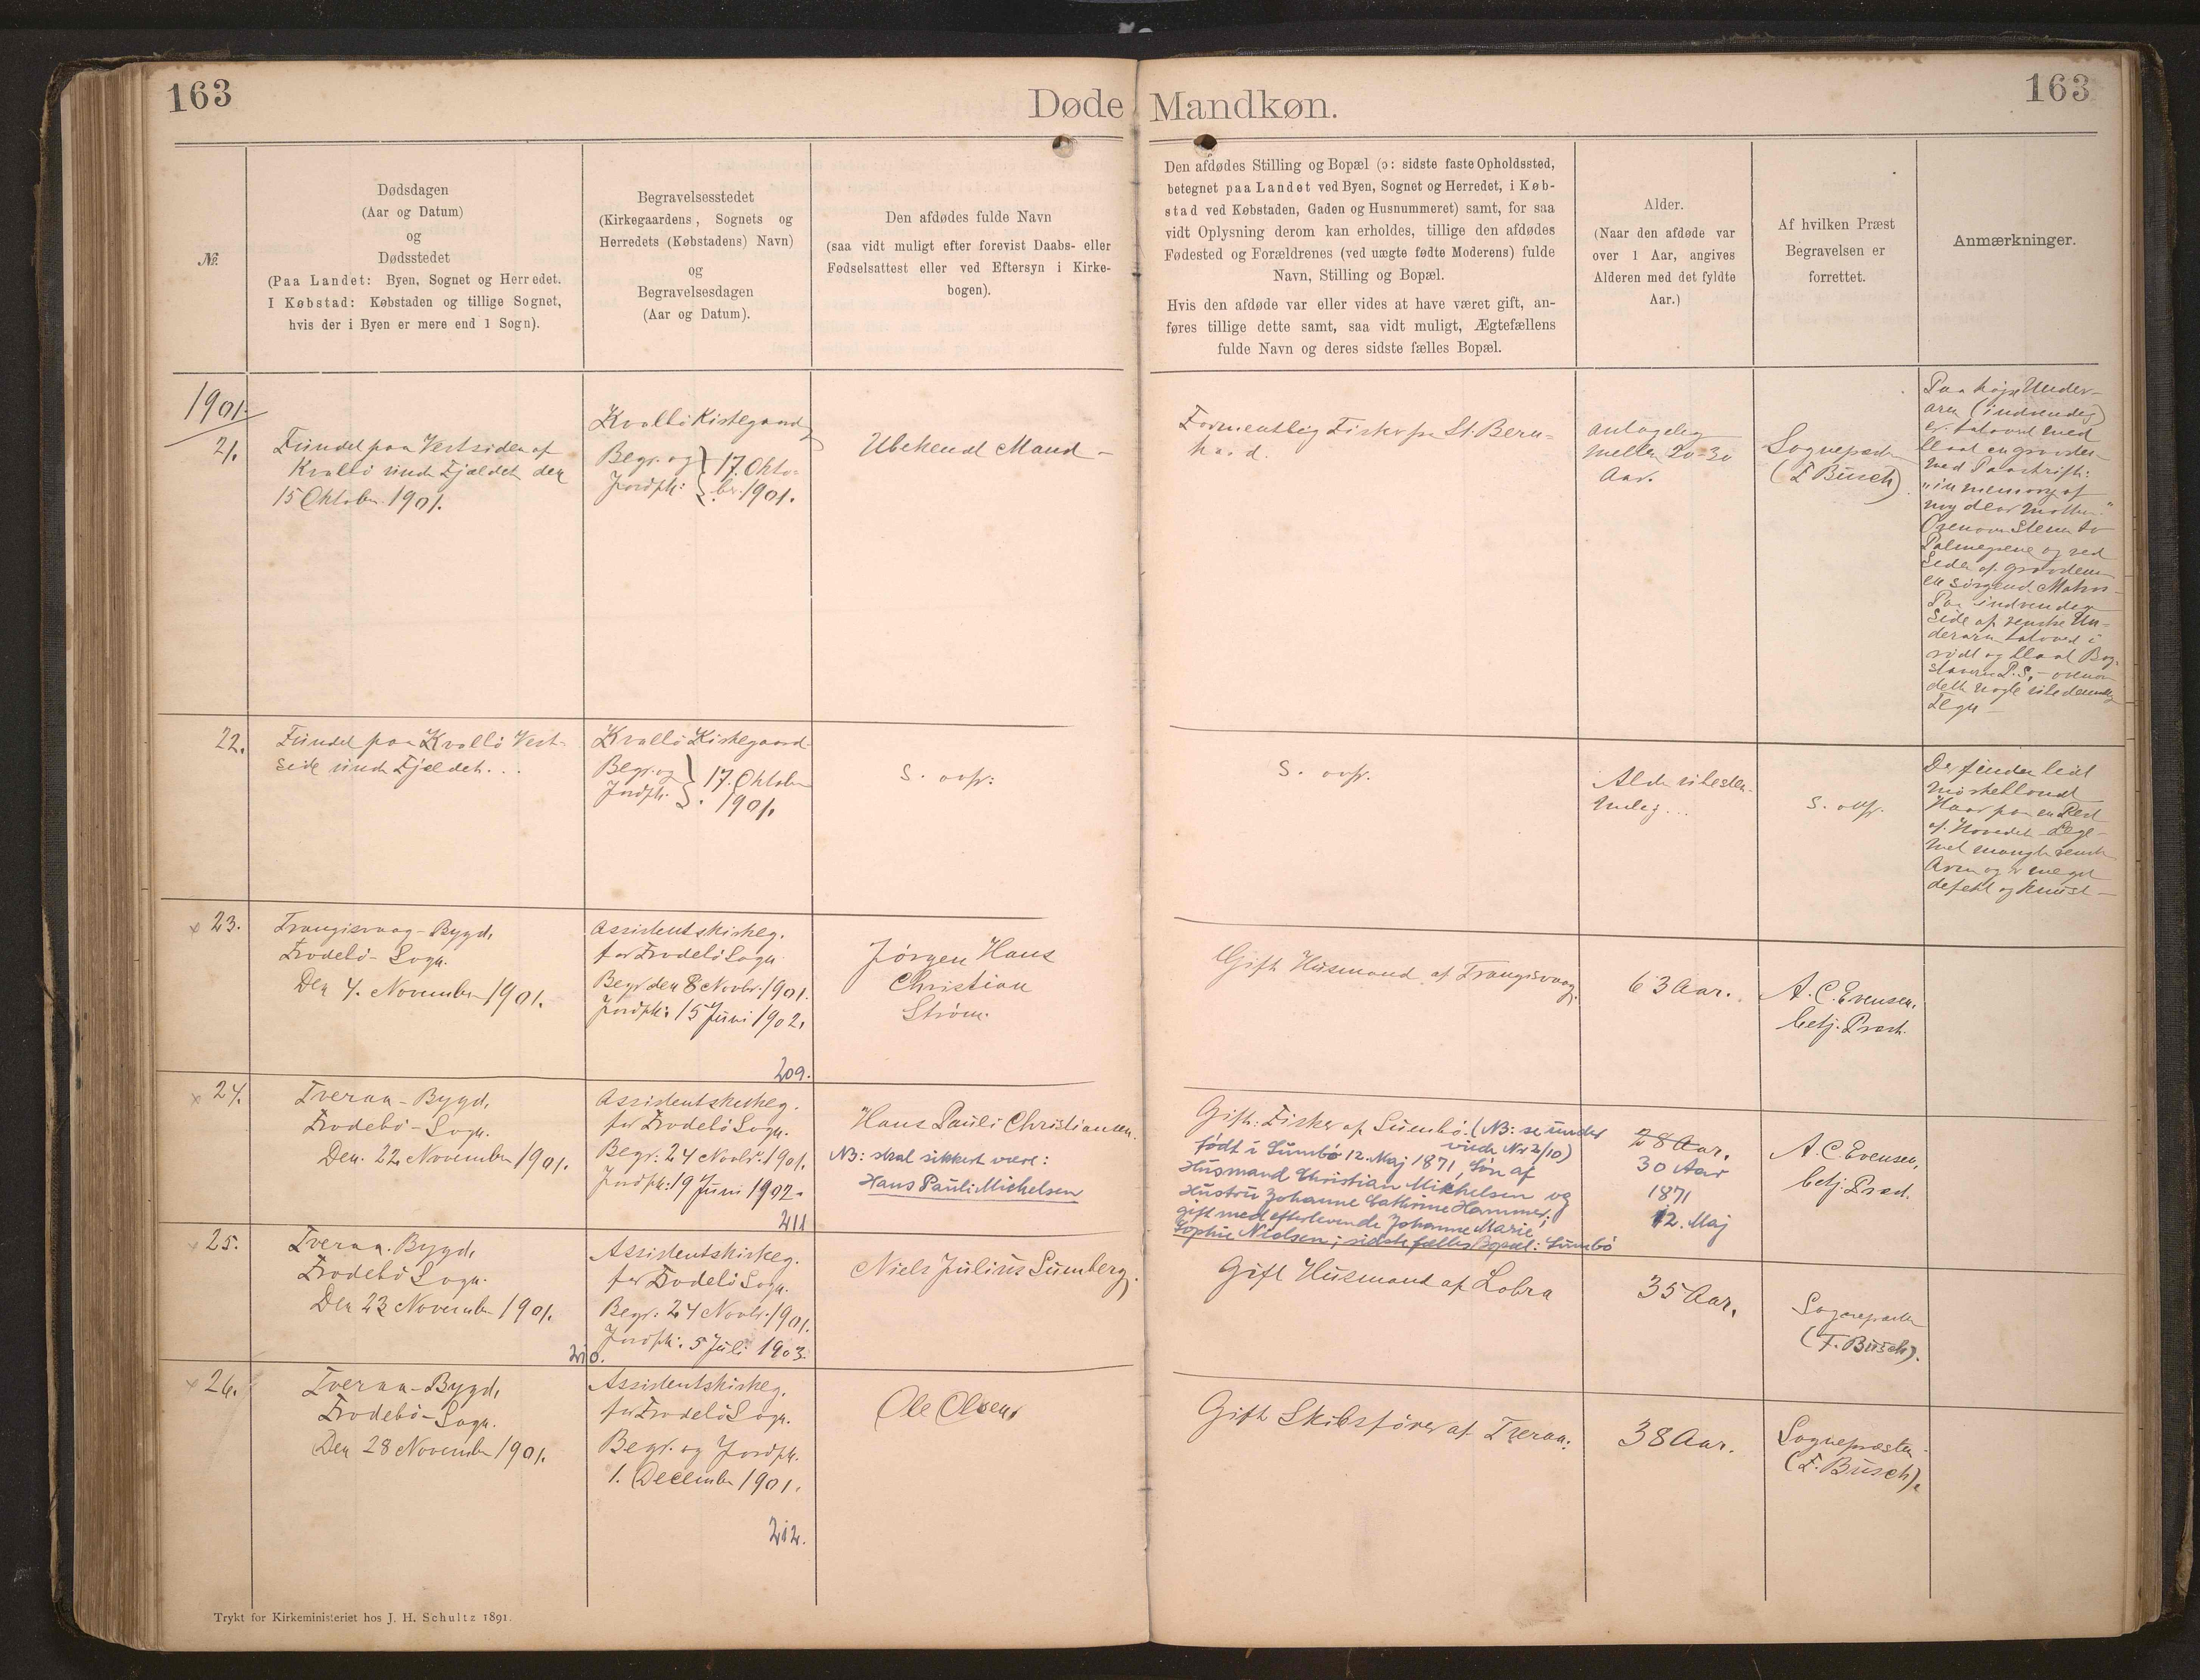 163
Døde Mandkøn.
163
№
Dødsdagen
(Aar og Datum)
og
Dødsstedet
(Paa Landet: Byen, Sognet og Herredet.
I Købstad: Købstaden og tillige Sognet,
hvis der i Byen er mere end 1 Sogn).
Begravelsesstedet
(Kirkegaardens, Sognets og
Herredets (Købstadens) Navn)
og
Begravelsesdagen
(Aar og Datum).
Den afdødes fulde Navn
(saa vidt muligt efter forevist Daabs- eller
Fødselsattest eller ved Eftersyn i Kirke-
bogen).
Den afdødes Stilling og Bopæl (ɔ: sidste faste Opholdssted,
betegnet paa Landet ved Byen, Sognet og Herredet, i Køb-
stad ved Købstaden, Gaden og Husnummeret) samt, for saa
vidt Oplysning derom kan erholdes, tillige den afdødes
Fødested og Forældrenes (ved uægte fødte Moderens) fulde
Navn, Stilling og Bopæl.
Hvis den afdøde var eller vides at have været gift, an-
føres tillige dette samt, saa vidt muligt, Ægtefællens
fulde Navn og deres sidste fælles Bopæl.
Alder.
(Naar den afdøde var
over 1 Aar, angives
Alderen med det fyldte
Aar.)
Af hvilken Præst
Begravelsen er
forrettet.
Anmærkninger.
1901.
21.
Fundet paa Vestsiden af
Kvalbø under Fjældet den
15 Oktober 1901.
Kvalbø Kirkegaard
Begr. og } 17. Okto-
Jordpk: } ber 1901.
Ubekendt Mand –
Formentlig Fisker fra St. Bern-
hard.
antagelig
mellem 20-30
Aar.
Sognepræsten
(F Busch).
Paa højre Under-
arm (indvendig)
er tatovert med
blaat en gravsten
med Paaskrift:
"in memory of
my dear mother."
Ovenover Stenen to
Palmegrene og ved
Siden af gravstenen
en sørgende Matros –
Paa indvendig
Side af venstre Un-
derarm tatovert i
rødt og blaat Bog-
staverne P.S. – ovenover
dette nogle utydelige
Tegn –
22.
Fundet paa Kvalbø Vest-
side under Fjældet...
Kvalbø Kirkegaard.
Begr. og } 17. Oktober
Jordpk. } 1901.
S. ovfr:
S. ovfr.
Alder ubestem-
melig...
s. ovfr.
Der findes lidt
mørkeblondt
Haar paa en Rest
af Hovedet. Lege-
met mangler venstre
Arm og er meget
defekt og knust –
x 23.
Trangisvaag-Bygd,
Frodebø-Sogn.
Den 4. November 1901.
Assistentskirkeg.
for Frodebø Sogn.
Begr den 8 Novbr. 1901.
Jordpk: 15 Juni 1902.
209.
Jørgen Hans
Christian
Strøm.
Gift Husmand af Trangisvaag.
63 Aar.
A. C. Evensen,
betj. Præst.
x 24.
Tveraa-Bygd,
Frodebø-Sogn.
Den. 22 November 1901.
Assistentskirkeg.
for Frodebø Sogn.
Begr. 24 Novbr. 1901.
Jordpk: 19 Juni 1902.
211
Hans Pauli Christiansen.
NB: skal sikkert være:
Hans Pauli Michelsen
Gift: Fisker af Sumbø. (NB: se under
vinde Nr 2/10)
født i Sumbø 12. Maj 1871, Søn af
Husmand Christian Mikhelsen og
Hustru Johanne Cathrine Hammer;
gift med efterlevende Johanne Marie
Sophie Nielsen; sidste fælles Bopæl: Sumbø
28 Aar.
30 Aar
1871
12. Maj
A. C. Evensen,
betj. Præst.
x 25.
Tveraa. Bygd,
Frodebø Sogn.
Den 23 November 1901.
Assistentskirkeg.
for Frodebø Sogn.
Begr. 24 Novbr. 1901.
Jordpk: 5 Juli 1903.
210.
Niels Julius Sumberg.
Gift Husmand af Lobra
35 Aar.
Sognepræsten
(F. Busch).
x 26.
Tveraa-Bygd,
Frodebø-Sogn.
Den 28 November 1901.
Assistentskirkeg.
for Frodebø Sogn.
Begr. og Jordpk.
1. December 1901.
212.
Ole Olsen.
Gift Skibsfører af Tveraa.
38 Aar.
Sognepræsten
(F. Busch).
Trykt for Kirkeministeriet hos J. H. Schultz 1891.